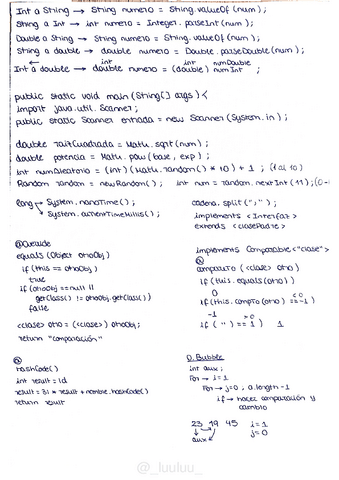 Int a String → String numero = String.valueOf (num);
String a Int → int numero = Integer.parseInt (num);
Double a String → String numero = String.valueOf (num);
String a double → double numero = Double.parseDouble (num);
← int int numDouble
Int a double → double numero = (double) num Int ;
public static void main (String[] args) {
import java.util.Scanner;
public static Scanner entrada = new Scanner (System.in);
double raizCuadrada = Math.sqrt (num);
double potencia = Math.pow (base, exp);
int numAleatorio = (int) (Math.random() * 10) + 1 ; (1 al 10)
Random random = new Random(); int num = random.nextInt (11); (0-
long → System.nanoTime();
↘ System.currentTimeMillis();
cadena.split (";");
implements <Interfaz>
extends <clasePadre>
@Override
equals (Object otroObj)
if (this == otroObj)
true
if (otroObj == null ||
getClass() != otroObj.getClass()
false
<clase> otro = (<clase>) otroObj;
return "comparación"
implements Comparable <"clase">
@
compareTo (<clase> otro)
if (this.equals (otro))
0
if (this.compTo (otro) == -1) < 0
-1
if ( " ) == 1) > 0 1
@
hashCode()
int result = id
result = 31 * result + nombre.hashCode()
return result
O. Bubble
int aux;
For → i = 1
For → j = 0 ; a.length - 1
if → hacer comparación y
cambio
23 19 45 i = 1
j = 0
aux
@_luuluu_